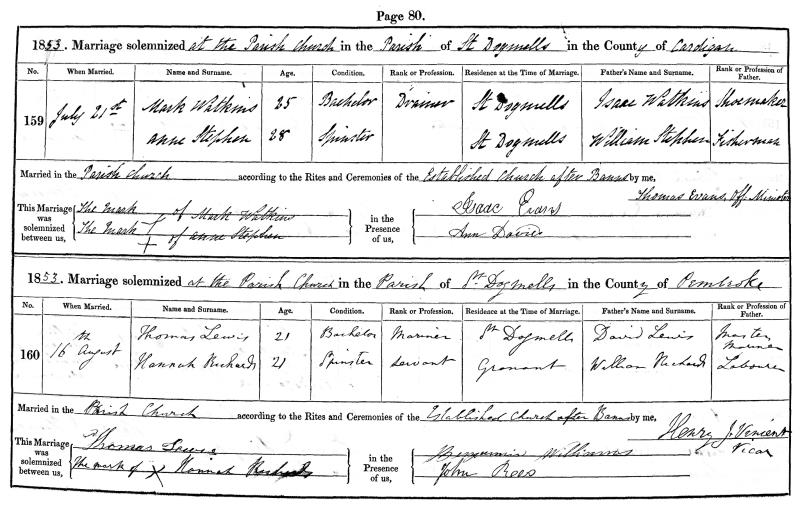 Page 80.
1853. Marriage solemnized at the Parish Church in the Parish of St Dogmells in the County of Cardigan
No. When Married. Name and Surname. Age. Condition. Rank or Profession. Residence at the Time of Marriage. Father's Name and Surname. Rank or Profession of Father.
159 July 21st Mark Watkins 25 Bachelor Drainer St Dogmells Isaac Watkins Shoemaker
anne Stephen 28 Spinster St Dogmells William Stephen Fisherman
Married in the Parish Church according to the Rites and Ceremonies of the Established Church after Banns by me,
Thomas Evans, Off. Minister
This Marriage was solemnized between us, The Mark of Mark Watkins in the Presence of us, Isaac Evans
The Mark of anne Stephen Ann Davies
1853. Marriage solemnized at the Parish Church in the Parish of St Dogmells in the County of Pembroke
No. When Married. Name and Surname. Age. Condition. Rank or Profession. Residence at the Time of Marriage. Father's Name and Surname. Rank or Profession of Father.
160 16th August Thomas Lewis 21 Bachelor Mariner St Dogmells David Lewis Master Mariner
Hannah Richards 21 Spinster Servant Granant William Richards Labourer
Married in the Parish Church according to the Rites and Ceremonies of the Established Church after Banns by me,
Henry J. Vincent
Vicar
This Marriage was solemnized between us, Thomas Lewis in the Presence of us, Benjamin Williams
The mark of X Hannah Richards John Rees